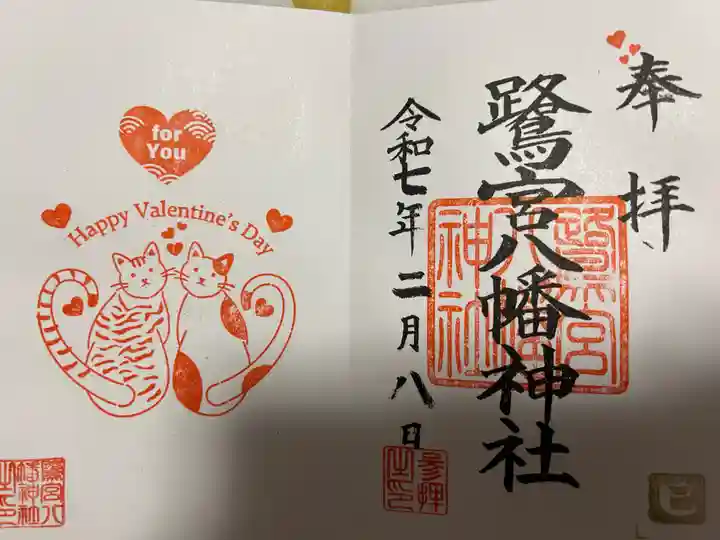 奉拝
鷺宮八幡神社
令和七年二月八日
鷺宮
八幡
神社
巳
for
You
Happy Valentine's Day
鷺宮八
幡神社
之印